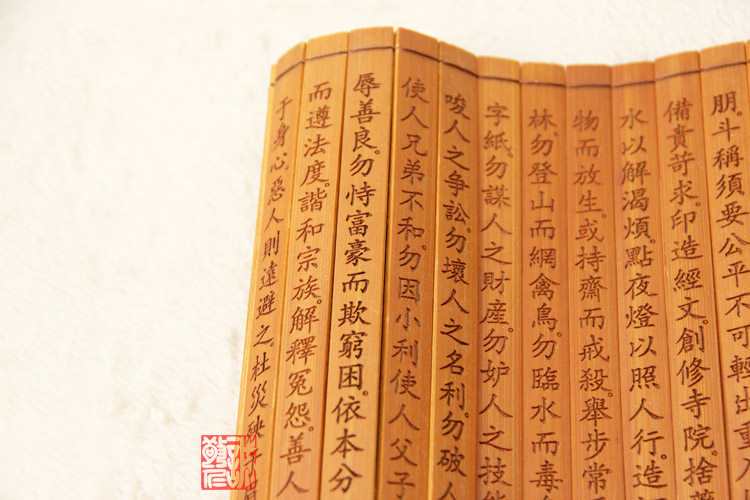 朋。斗稱須要公平不可輕出重入
備責苛求。印造經文。創修寺院。捨
水以解渴煩。點夜燈以照人行。造
物而放生。或持齋而戒殺。舉步常
林。勿登山而網禽鳥。勿臨水而毒
字紙。勿謀人之財産。勿妒人之技能
唆人之争訟。勿壞人之名利。勿破人
使人兄弟不和。勿因小利使人父子
辱善良。勿恃富豪而欺窮困。依本分
而遵法度。諧和宗族。解釋冤怨。善人
于身心。惡人則遠避之。杜災殃于眉